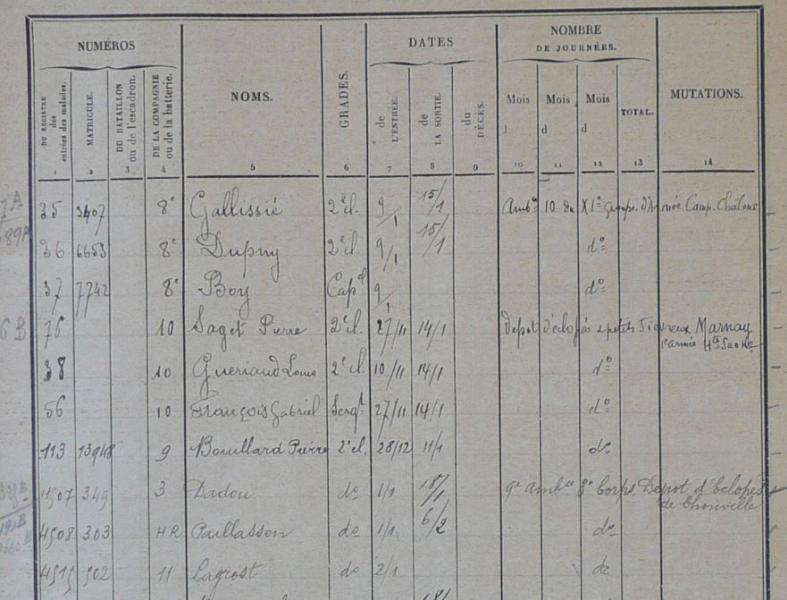 NUMÉROS DATES NOMBRE DE JOURNÉES.
DU REGISTRE des entrées des malades. MATRICULE. DU BATAILLON ou de l'escadron. DE LA COMPAGNIE ou de la batterie. NOMS. GRADES. de L'ENTRÉE. de LA SORTIE. du DÉCÈS. Mois d Mois d Mois d TOTAL. MUTATIONS.
1 2 3 4 5 6 7 8 9 10 11 12 13 14
35 3407 8e Gallissié 2e cl. 9/1 15/1 Ambce 10 du XIe Camp. Châlons
36 6653 8e Dupuy 2e cl. 9/1 15/1 do
37 7742 8e Boy Capal 9/1 do
75 10 Saget Pierre 2e cl. 27/11 14/1 Depot d'éclopés petits Marnay
Hte Saone
38 10 Gueriaud Louis 2e cl. 10/11 14/1 do
56 10 François Gabriel Sergt 27/11 14/1 do
113 13948 9 Bouillard Pierre 2e cl. 28/12 11/1 do
4507 349 3 Dadou do 1/1 18/1 9e ambce 8e Corps. Depot d'Eclopés
de
4508 303 HR Paillasson do 1/1 6/2 do
4515 502 11 Lagrost do 2/1 do